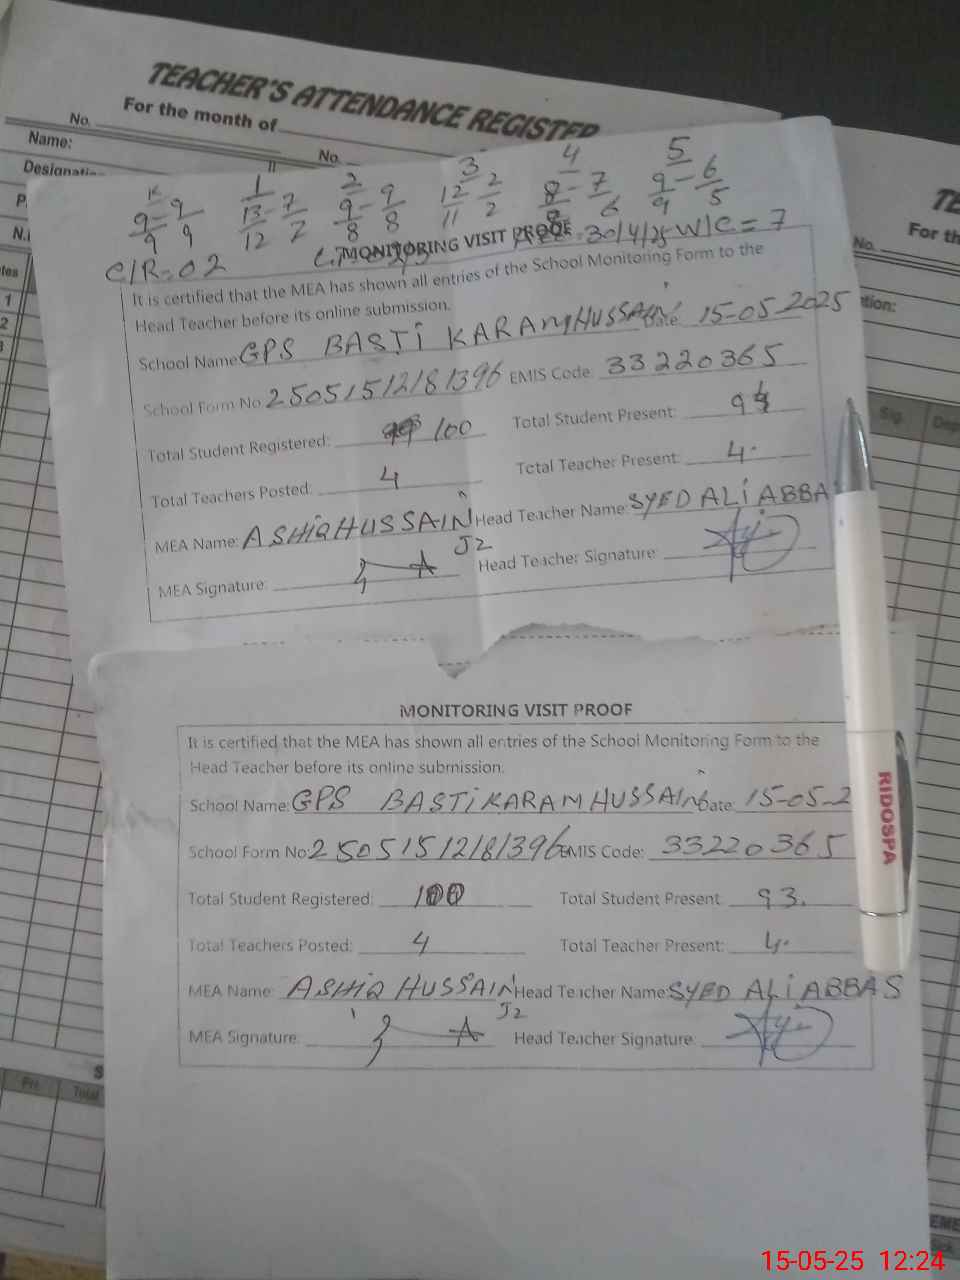 TEACHER'S ATTENDANCE REGISTER
For the month of
No.
No
Name:
TE
For th
No.
K 1 2 3 4 5
9 - 9 13 - 7 9 - 9 12 2 8 - 7 9 - 6
9 9 12 7 8 8 11 2 8 6 9 5
C/R=02
30/4/25 W/C = 7
MONITORING VISIT PROOF
It is certified that the MEA has shown all entries of the School Monitoring Form to the
Head Teacher before its online submission.
School Name: GPS BASTI KARAM HUSSAIN Date: 15-05-2025
School Form No: 25051512181396 EMIS Code: 33220365
Total Student Registered: 100 Total Student Present: 94
Total Teachers Posted: 4 Total Teacher Present: 4.
MEA Name: ASHIQ HUSSAIN Head Teacher Name: SYED ALI ABBA
J2
MEA Signature: Head Teacher Signature:
MONITORING VISIT PROOF
It is certified that the MEA has shown all entries of the School Monitoring Form to the
Head Teacher before its online submission.
School Name: GPS BASTI KARAM HUSSAIN Date: 15-05-2
School Form No: 25051512181396 EMIS Code: 33220365
Total Student Registered: 100 Total Student Present: 93.
Total Teachers Posted: 4 Total Teacher Present: 4.
MEA Name: ASHIQ HUSSAIN Head Teacher Name: SYED ALI ABBAS
J2
MEA Signature: Head Teacher Signature:
RIDOSPA
Sig.
Fri.
Total
15-05-25 12:24